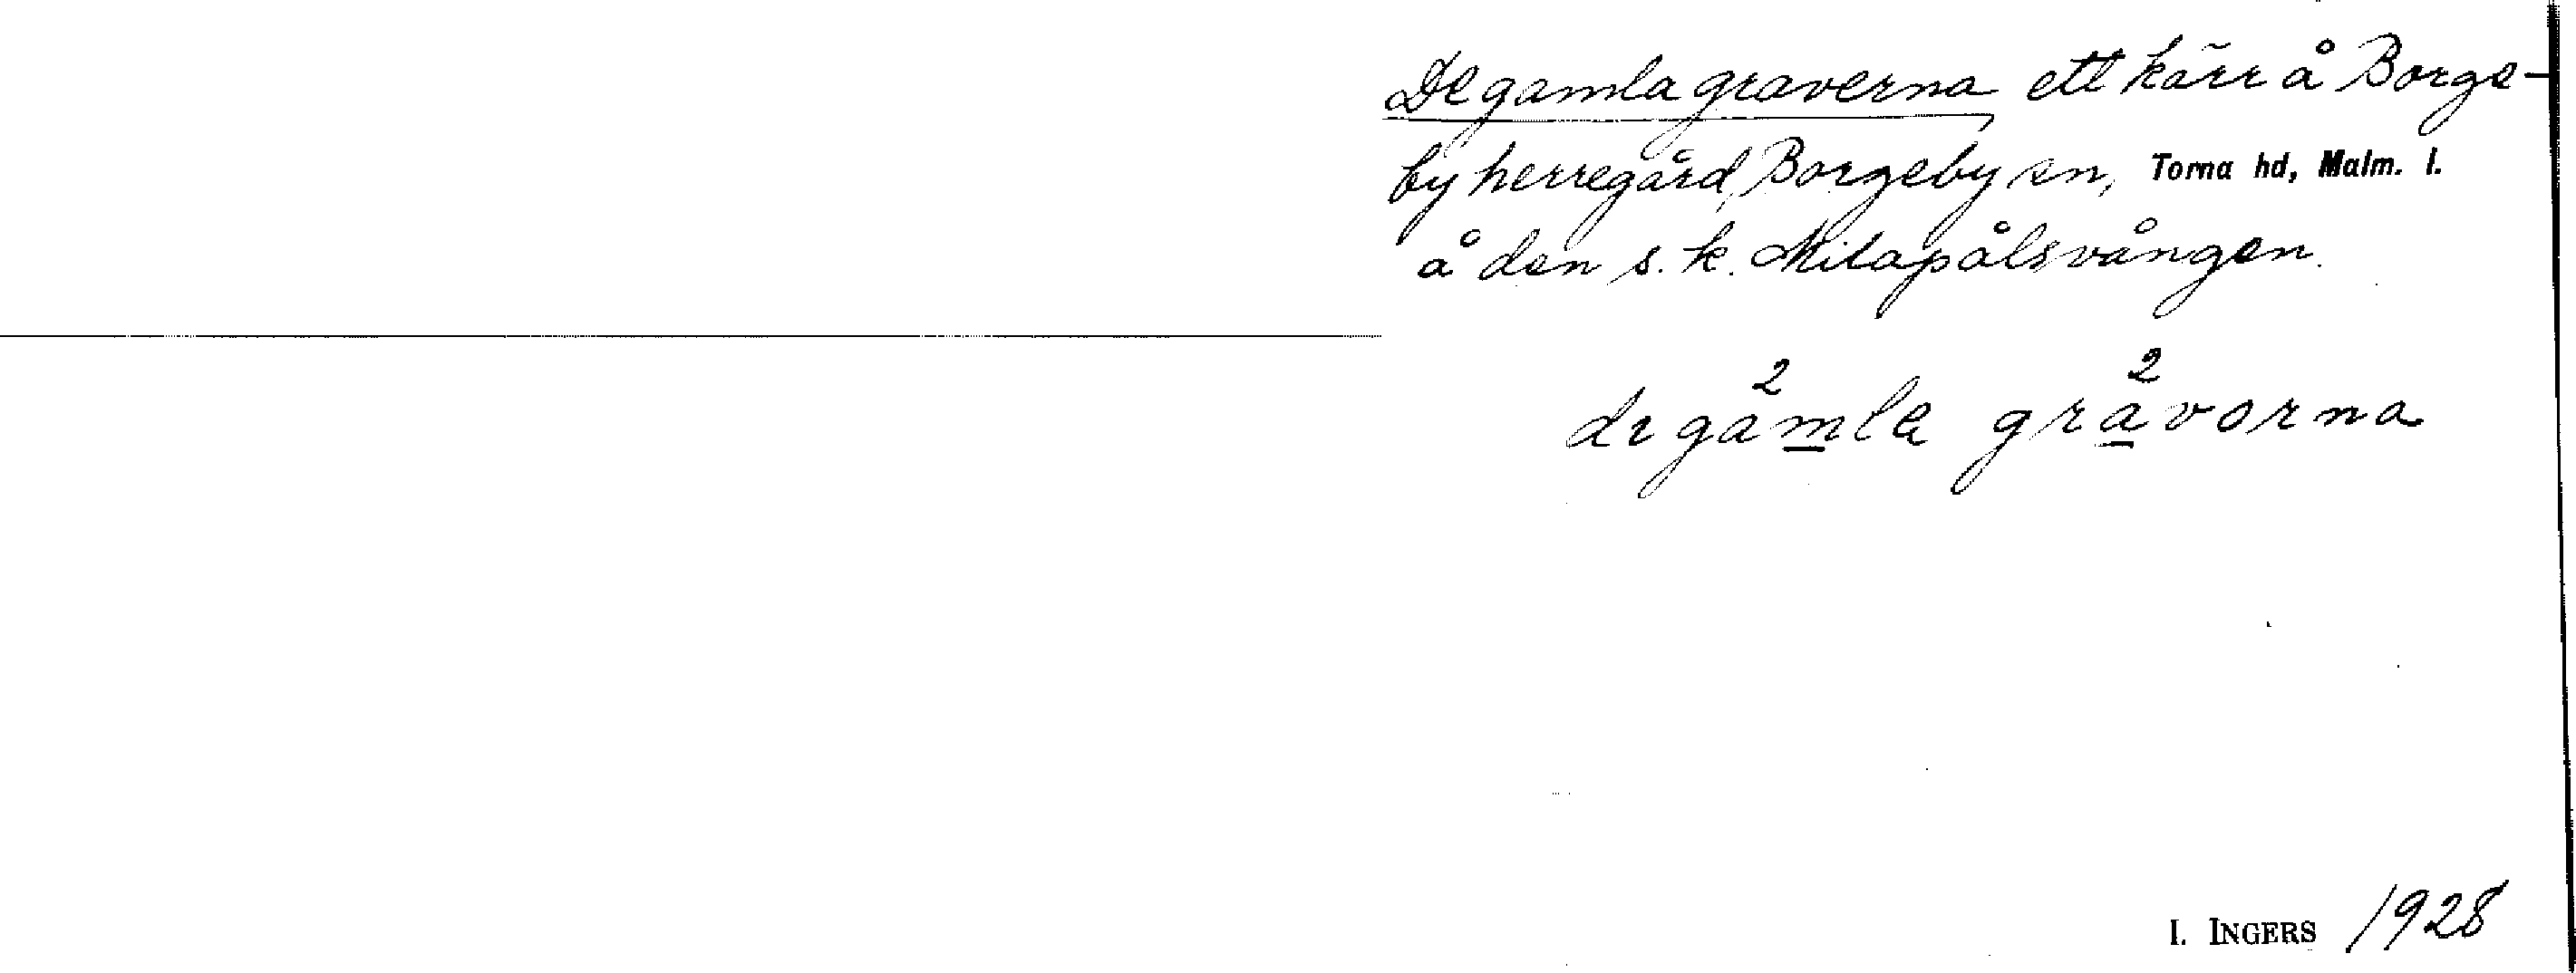 De gamla graverna ett kärr å Borge-
by herregård, Borgeby sn, Torna hd, Malm. l.
å den s. k. Milapålsvången.
2 2
di gamla gravorna
I. INGERS 1928